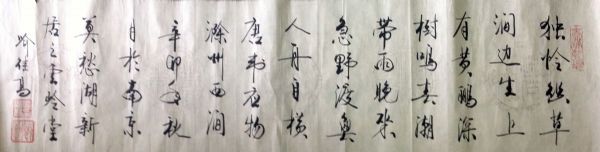 独怜幽草
涧边生上
有黄鹂深
树鸣春潮
带雨晚来
急野渡無
人舟自横
唐韦应物
滁州西涧
辛卯年秋
月於南京
莫愁湖新
居之雲